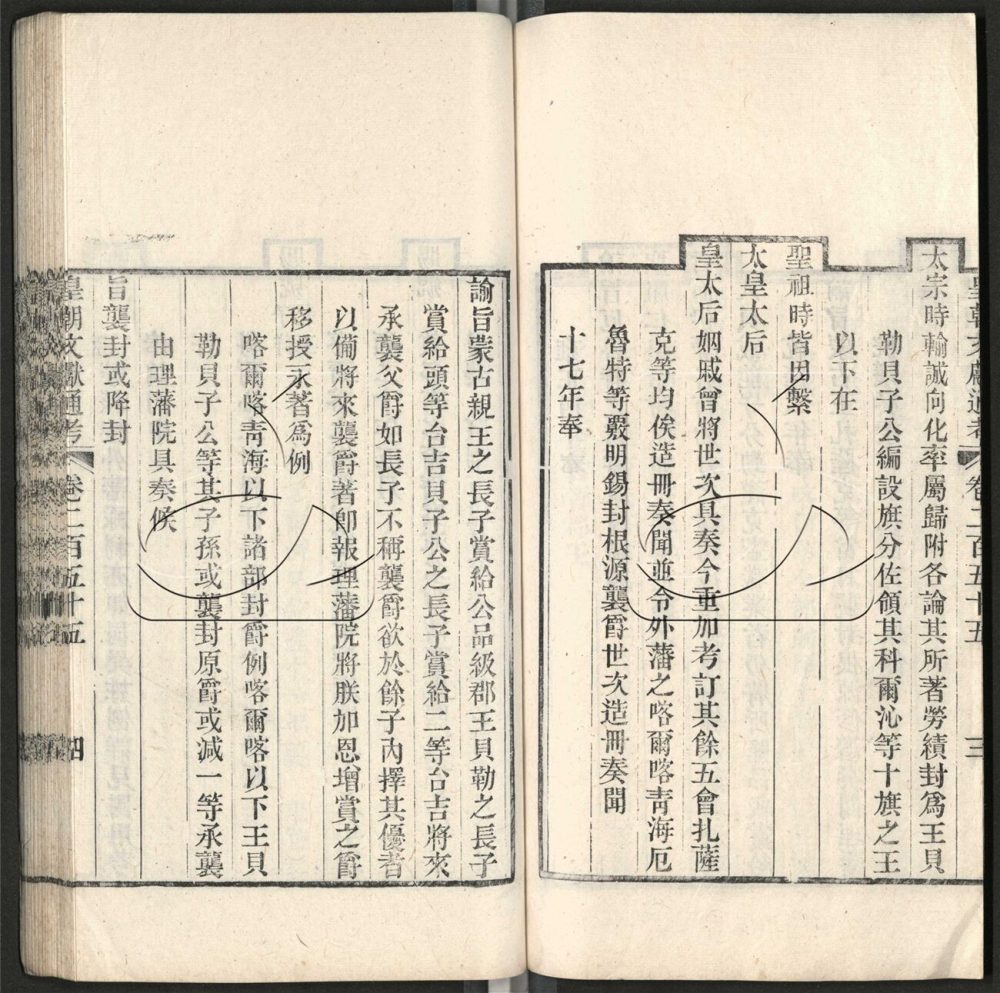 皇朝文獻通考 卷二百五十五 三
太宗時輸誠向化率屬歸附各論其所著勞績封爲王貝
勒貝子公編設旗分佐領其科爾沁等十旗之王
以下在
聖祖時皆因繫
太皇太后
皇太后姻戚曾將世次具奏今重加考訂其餘五會扎薩
克等均俟造冊奏聞並令外藩之喀爾喀靑海厄
魯特等覈明錫封根源襲爵世次造冊奏聞
十七年奉
諭旨蒙古親王之長子賞給公品級郡王貝勒之長子
賞給頭等台吉貝子公之長子賞給二等台吉將來
承襲父爵如長子不稱襲爵欲於餘子內擇其優者
以備將來襲爵著卽報理藩院將朕加恩增賞之爵
移授永著爲例
喀爾喀靑海以下諸部封爵例喀爾喀以下王貝
勒貝子公等其子孫或襲封原爵或減一等承襲
由理藩院具奏候
旨襲封或降封
皇朝文獻通考 卷二百五十五 四